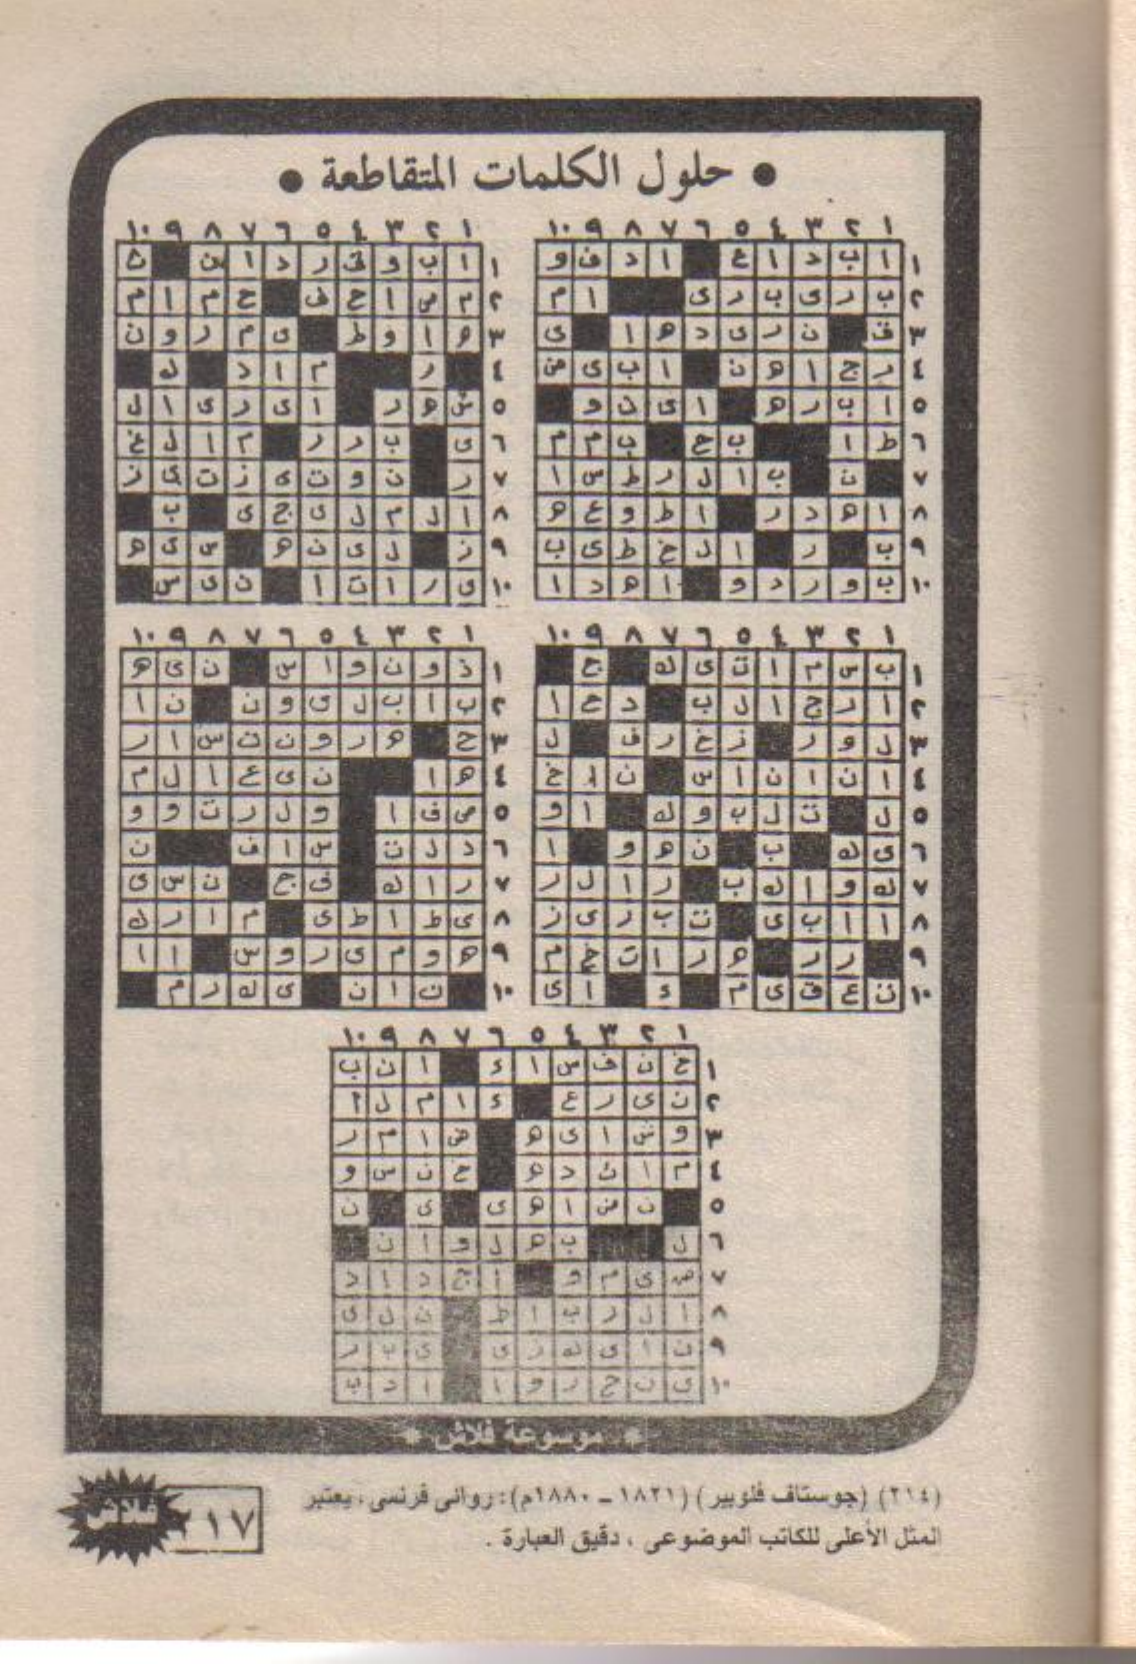 ● حلول الكلمات المتقاطعة ●
١ ٢ ٣ ٤ ٥ ٦ ٧ ٨ ٩ ١٠
١ ا ب د ا ع ■ ا د ف و
٢ ب ر ی ب ر ی ■ ■ ا م
٣ ق ■ ن ر ی د ه ا ■ ی
٤ ر ج ا ه ن ■ ا ب ی ض
٥ ا ب ر ه ■ ا ی ن و ■
٦ ط ا ■ ■ ب ح ■ ب م م
٧ ■ ن ■ ب ا ل ر ط س ا
٨ ا ه د ر ■ ا ط و ع ه
٩ ب ■ ر ■ ا ل خ ط ی ب
١٠ ب و ر د و ■ ا ه د ا
١ ٢ ٣ ٤ ٥ ٦ ٧ ٨ ٩ ١٠
١ ا ب و ق ر د ا ن ■ ث
٢ م ص ا ح ف ■ ح م ا م
٣ ه ا و ط ■ ی م ر و ن
٤ ■ ر ■ ■ م ا د ■ ل ■
٥ ش ه ر ■ ا ی ر ی ا ل
٦ ی ■ ب د ر ■ م ا ل غ
٧ ر ■ ن و ت ی ن ت ی ز
٨ ا ل م ل ی ج ی ■ ب ■
٩ ز ■ ل ی ن ه ■ س ی ه
١٠ ی ر ا ت ا ■ ن ی س ■
١ ٢ ٣ ٤ ٥ ٦ ٧ ٨ ٩ ١٠
١ ب س م ا ت ی ك ■ ج ■
٢ ا ر ج ا ل ب ■ د ح ا
٣ ل و ر ■ ز خ ر ف ■ ل
٤ ا ن ا ن ا س ■ ن ا خ
٥ ل ■ ت ل ب و ك ■ ا و
٦ ی ك ■ ب ■ ن ه و ■ ا
٧ ك و ا ك ب ■ ر ا ل ر
٨ ا ا ب ی ■ ت ب ر ی ز
٩ ■ ر ر ■ ه ر ا ت خ م
١٠ ن ع ق ی م ■ ء ■ ا ی
١ ٢ ٣ ٤ ٥ ٦ ٧ ٨ ٩ ١٠
١ ذ و ن و ا س ■ ن ی ه
٢ ب ا ب ل ی و ن ■ ن ا
٣ ح ■ ه ر و ن ت س ا ر
٤ ه ا ■ ■ ن ی ع ا ل م
٥ ص ف ا ■ و ل ر ت و و
٦ د ل ت ■ س ا ف ■ ■ ن
٧ ر ا ك ■ ف ج ■ ن س ی
٨ ی ط ا ط ی ■ م ا ر ك
٩ ه و م ی ر و س ■ ا ا
١٠ ■ ن ا ن ■ ی ك ر م ■
١ ٢ ٣ ٤ ٥ ٦ ٧ ٨ ٩ ١٠
١ خ ن ف س ا ء ■ ا ن ب
٢ ن ی ر ع ■ ء ا م ل ا
٣ و ش ا ی ه ■ ض ا م ر
٤ م ا ئ د ه ■ خ ن س و
٥ ■ ن ض ا ه ی ■ ی ■ ن
٦ ل ■ ■ ب ه ل و ا ن ■
٧ ه ی م و ■ ا ج د ا د
٨ ا ل ر ب ا ط ■ ن ل ی
٩ ن ا ی ك ر ی ■ ی ب ر
١٠ ی ن ج ر و ا ■ ا د ب
* موسوعة فلاش *
(٢١٤) (جوستاف فلوبير) (١٨٢١ – ١٨٨٠م): روائى فرنسى، يعتبر
المثل الأعلى للكاتب الموضوعى ، دقيق العبارة .
٢١٧
فلاش